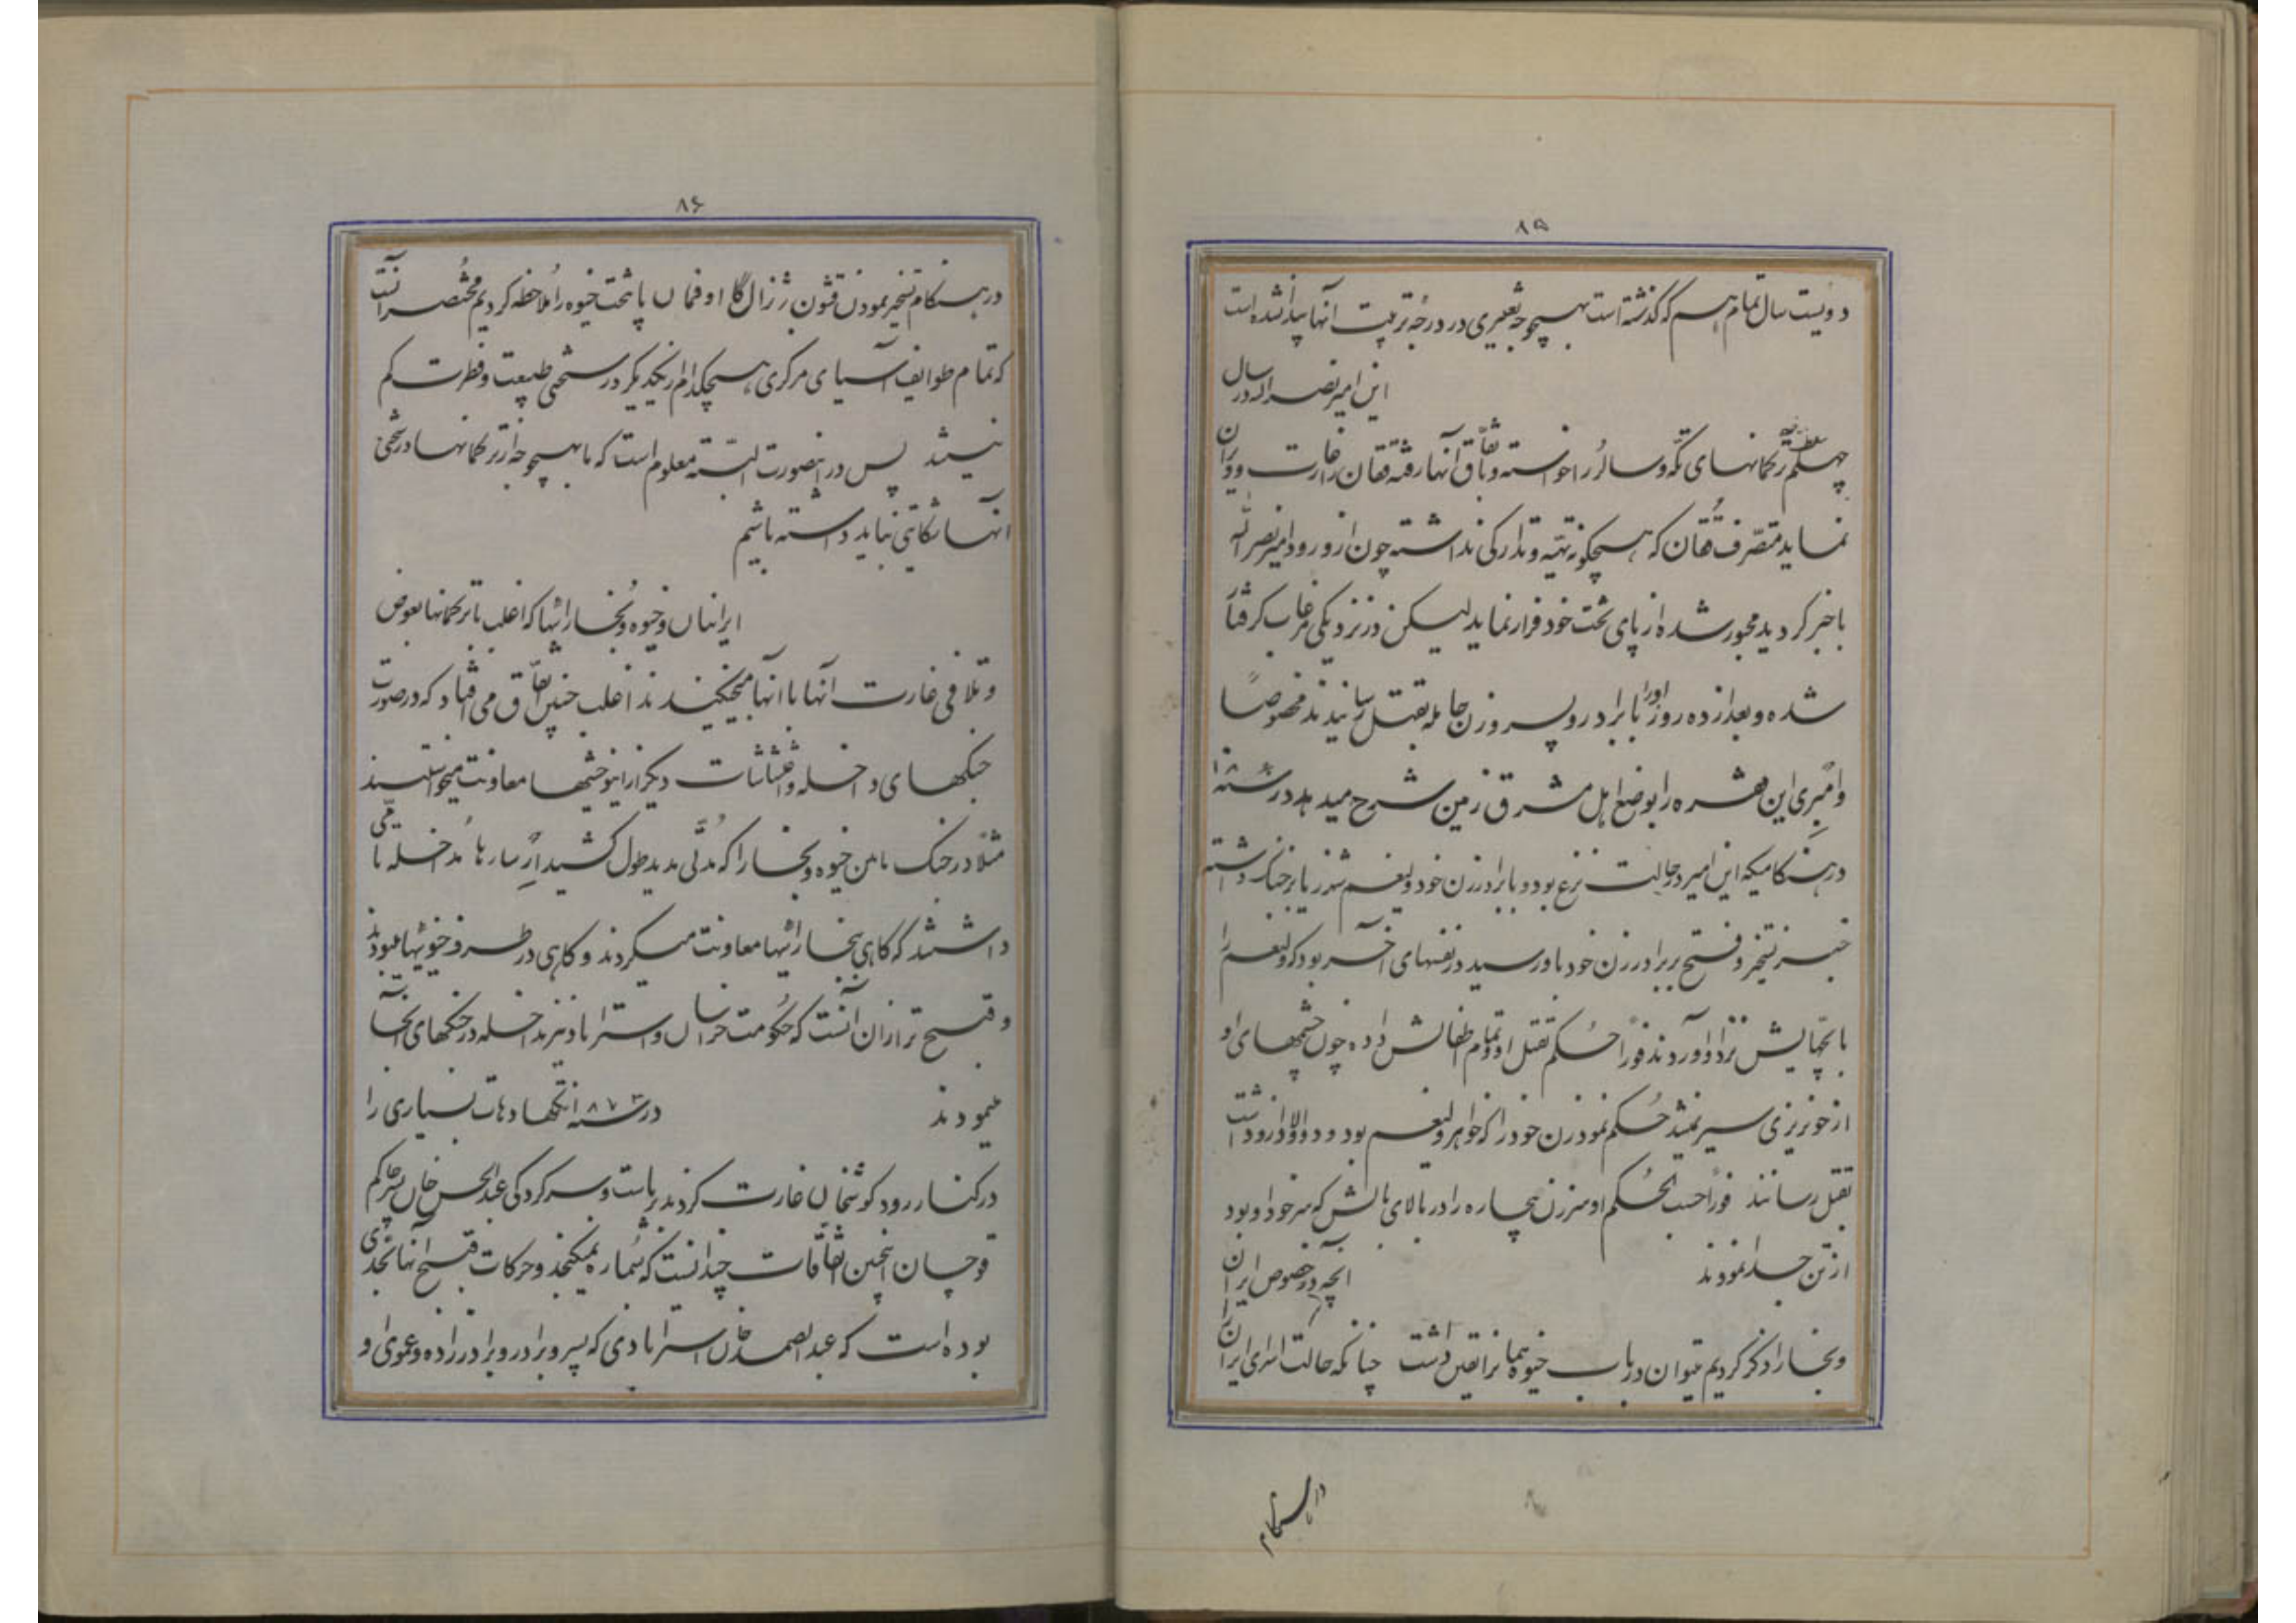 ۸۵
دویست سال تمام هم که گذشته است بهیچوجه تغییری در درجه تربیت آنها پیدا نشده است
این امیر نصراله در سال
چهلم ترکمانهای تکه و سالر را خواسته و باتفاق آنها رفته را غارت و ویران
نماید متصرف که هیچگونه تهیه و تدارکی نداشته چون از ورود امیر نصرالله
باخبر گردید مجبور شده از پای تخت خود فرار نماید لیکن در نزدیکی مرغاب گرفتار
شده و بعد از ده روز او را با برادر و پسر و زن حامله بقتل رسانیدند مخصوصاً
وامبری این فقره را بوضع اهل مشرق زمین شرح میدهد در سنه
در هنگامیکه این امیر در حالت نزع بود و با برادر زن خود ولینعم جنگ داشته
خبر تسخیر و فتح برادر زن خود باو رسید در نفسهای آخر بود که ولینعم را
با بچهایش نزد او آوردند فوراً حکم بقتل او و تمام اطفالش داده چون چشمهای او
از خونریزی سیر نمیشد حکم نمود زن خود را که خواهر ولینعم بود و دو اولاد از او داشت
بقتل رسانند فوراً حسب الحکم او سر زن بیچاره را در بالای بالش که سر خود او بود
از تن جدا نمودند
آنچه در خصوص ایران
و بخارا ذکر کردیم میتوان در باب خیوه همانرا یقین داشت چنانکه حالت اسرای ایران
در هنگام
۸۶
در هنگام تسخیر نمودن قشون ژنرال کااوفمان پایتخت خیوه را ملاحظه کردیم مختصر آنست
که تمام طوایف آسیای مرکزی هیچکدام از یکدیگر در سختی طبیعت و فطرت کم
نیستند پس در اینصورت البته معلوم است که ما بهیچوجه از ترکمانها در سختی
آنها شکایتی نباید داشته باشیم
ایرانیان و خیوه و بخارائیها که اغلب با ترکمانها بعوض
و تلافی غارت آنها با آنها میجنگیدند اغلب چنین اتفاق می افتاد که در صورت
جنگهای داخله و اغتشاشات دیگر از این وحشیها معاونت میخواستند
مثلا در جنگ مابین خیوه و بخارا که مدتی مدید طول کشید از سارها مداخله تامی
داشتند که گاهی ببخارائیها معاونت میکردند و گاهی در طرف خیوئیها میبودند
و قبیح تر از آن آنست که حکومت خراسان و استراباد نیز مداخله در جنگهای آنجا
مینمودند
در سنه ۱۸۷۳ تکه ها دهات بسیاری را
در کنار رود کوشخان غارت کردند بریاست و سرکردگی عبدالحسن خان پسر حاکم
قوچان اینچنین اتفاقات چندانست که بشماره نمیگنجد و حرکات قبیح آنها بحدی
بوده است که عبدالصمد خان استرابادی که پسر و برادر و برادر زاده و عموی او